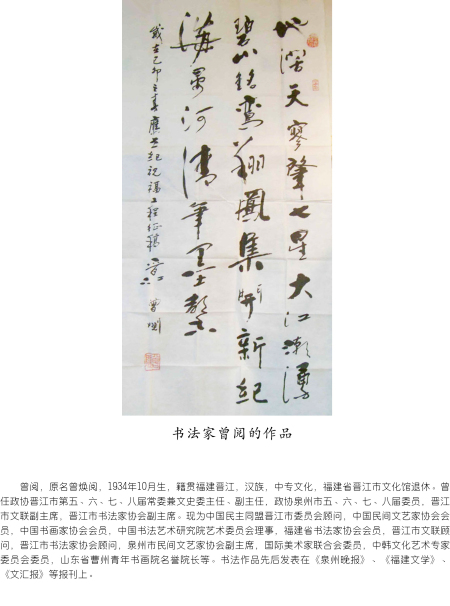 地阔天寥肇七星大江潮
碧翔鳳集开新纪
海晏河清笔墨
歲在己卯之春應世纪祝福工程征稿 晋江 曾阅
书法家曾阅的作品
曾阅，原名曾焕阅，1934年10月生，籍贯福建晋江，汉族，中专文化，福建省晋江市文化馆退休。曾
任政协晋江市第五、六、七、八届常委兼文史委主任、副主任，政协泉州市五、六、七、八届委员，晋江
市文联副主席，晋江市书法家协会副主席。现为中国民主同盟晋江市委员会顾问，中国民间文艺家协会会
员，中国书画家协会会员，中国书法艺术研究院艺术委员会理事，福建省书法家协会会员，晋江市文联顾
问，晋江市书法家协会顾问，泉州市民间文艺家协会副主席，国际美术家联合会委员，中韩文化艺术专家
委员会委员，山东省曹州青年书画院名誉院长等。书法作品先后发表在《泉州晚报》、《福建文学》、
《文汇报》等报刊上。